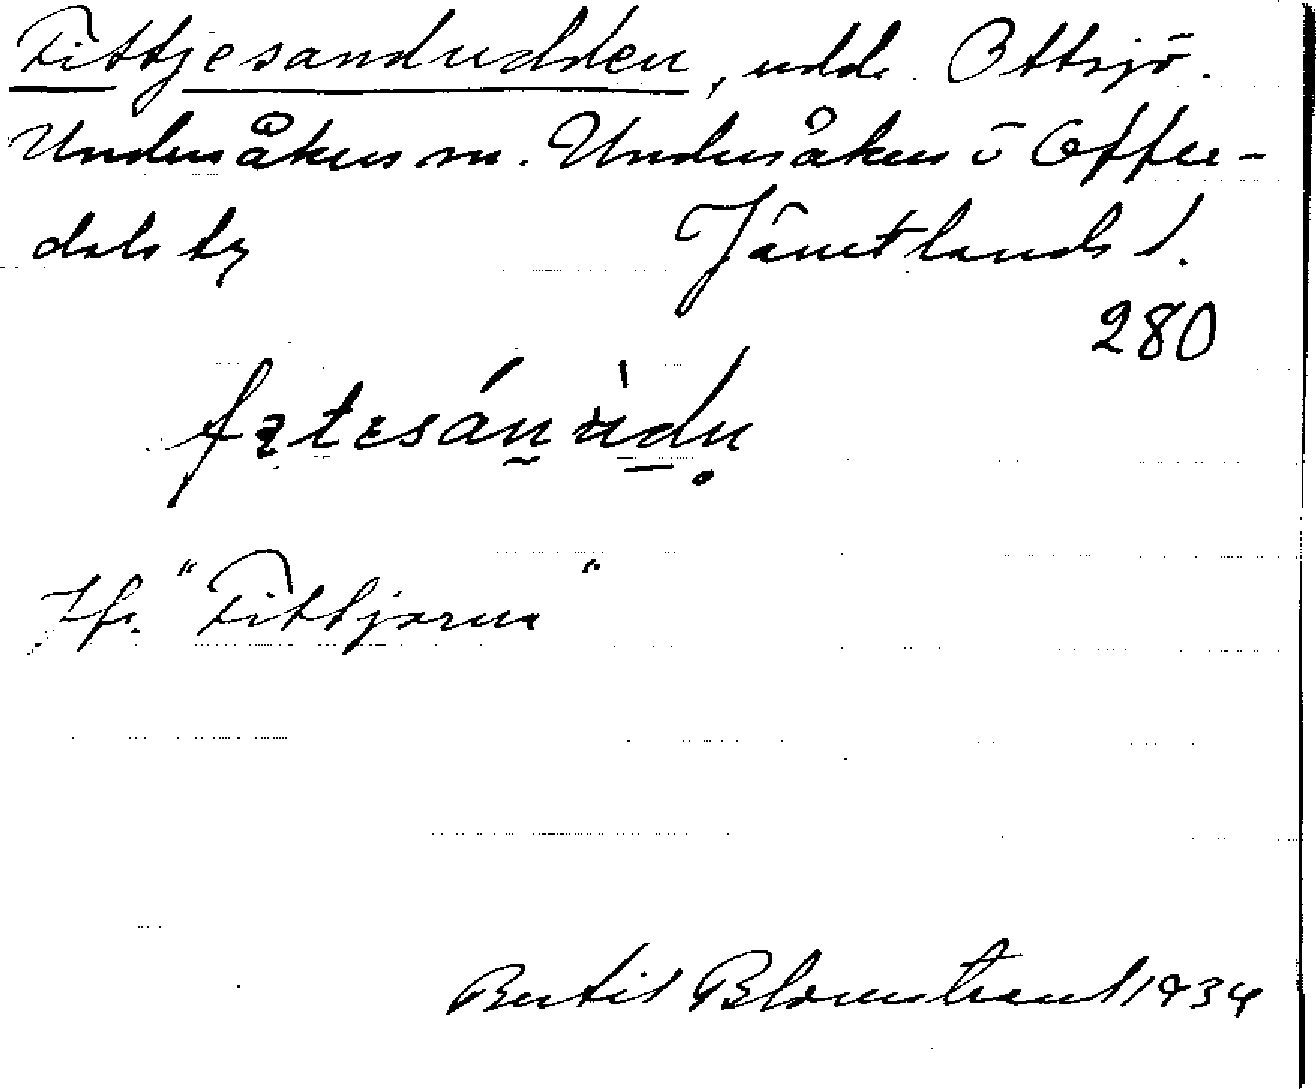 Fittjesandudden, udde. Ottsjö.
Undersåkers sn. Undersåkers o Offer-
dals tg Jämtlands l.
280
Jfr. "Fittjarna"
Bertil Blomstrand 1934